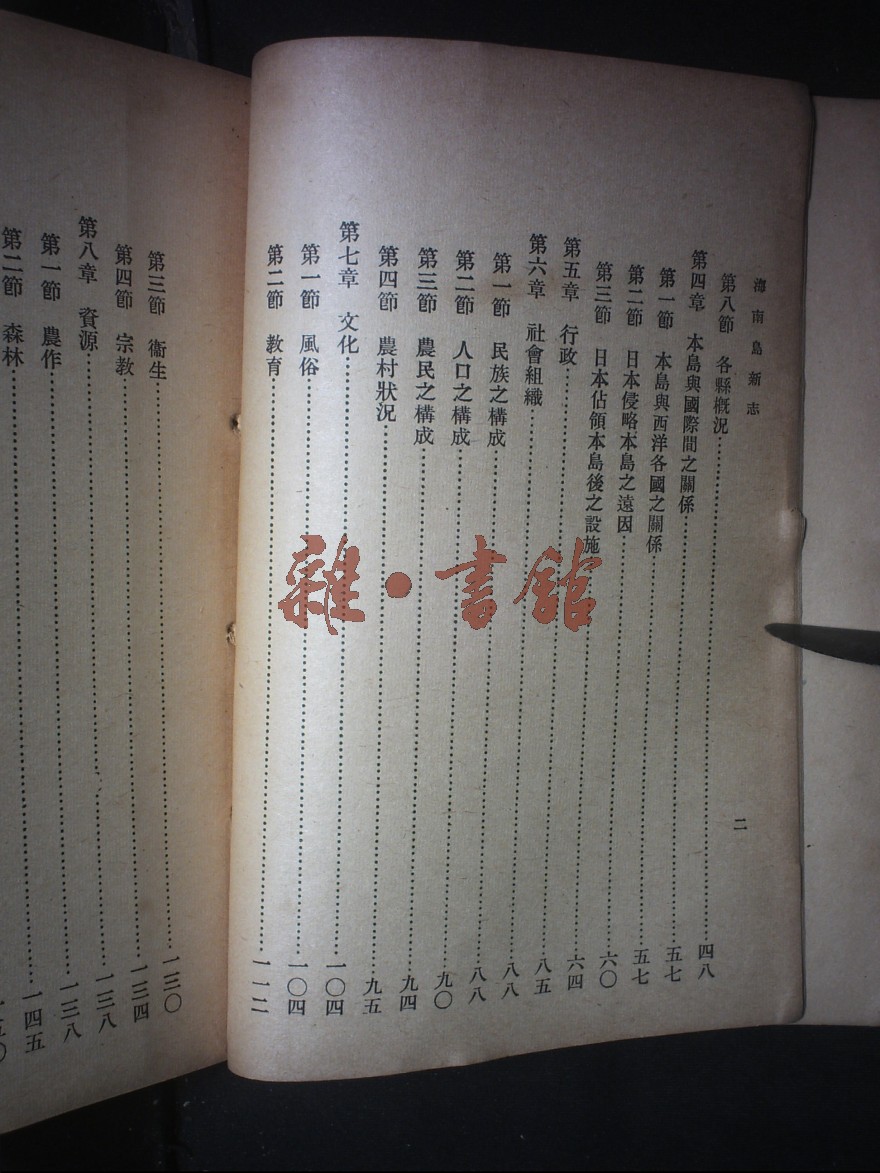 海南島新志 二
第八節 各縣概況……四八
第四章 本島與國際間之關係……五七
第一節 本島與西洋各國之關係……五七
第二節 日本侵略本島之遠因……六〇
第三節 日本佔領本島後之設施……六四
第五章 行政……八五
第六章 社會組織……八八
第一節 民族之構成……八八
第二節 人口之構成……九〇
第三節 農民之構成……九四
第四節 農村狀況……九五
第七章 文化……一〇四
第一節 風俗……一〇四
第二節 教育……一一二
第三節 衞生……一三〇
第四節 宗教……一三四
第八章 資源……一三八
第一節 農作……一三八
第二節 森林……一四五
雜·書館